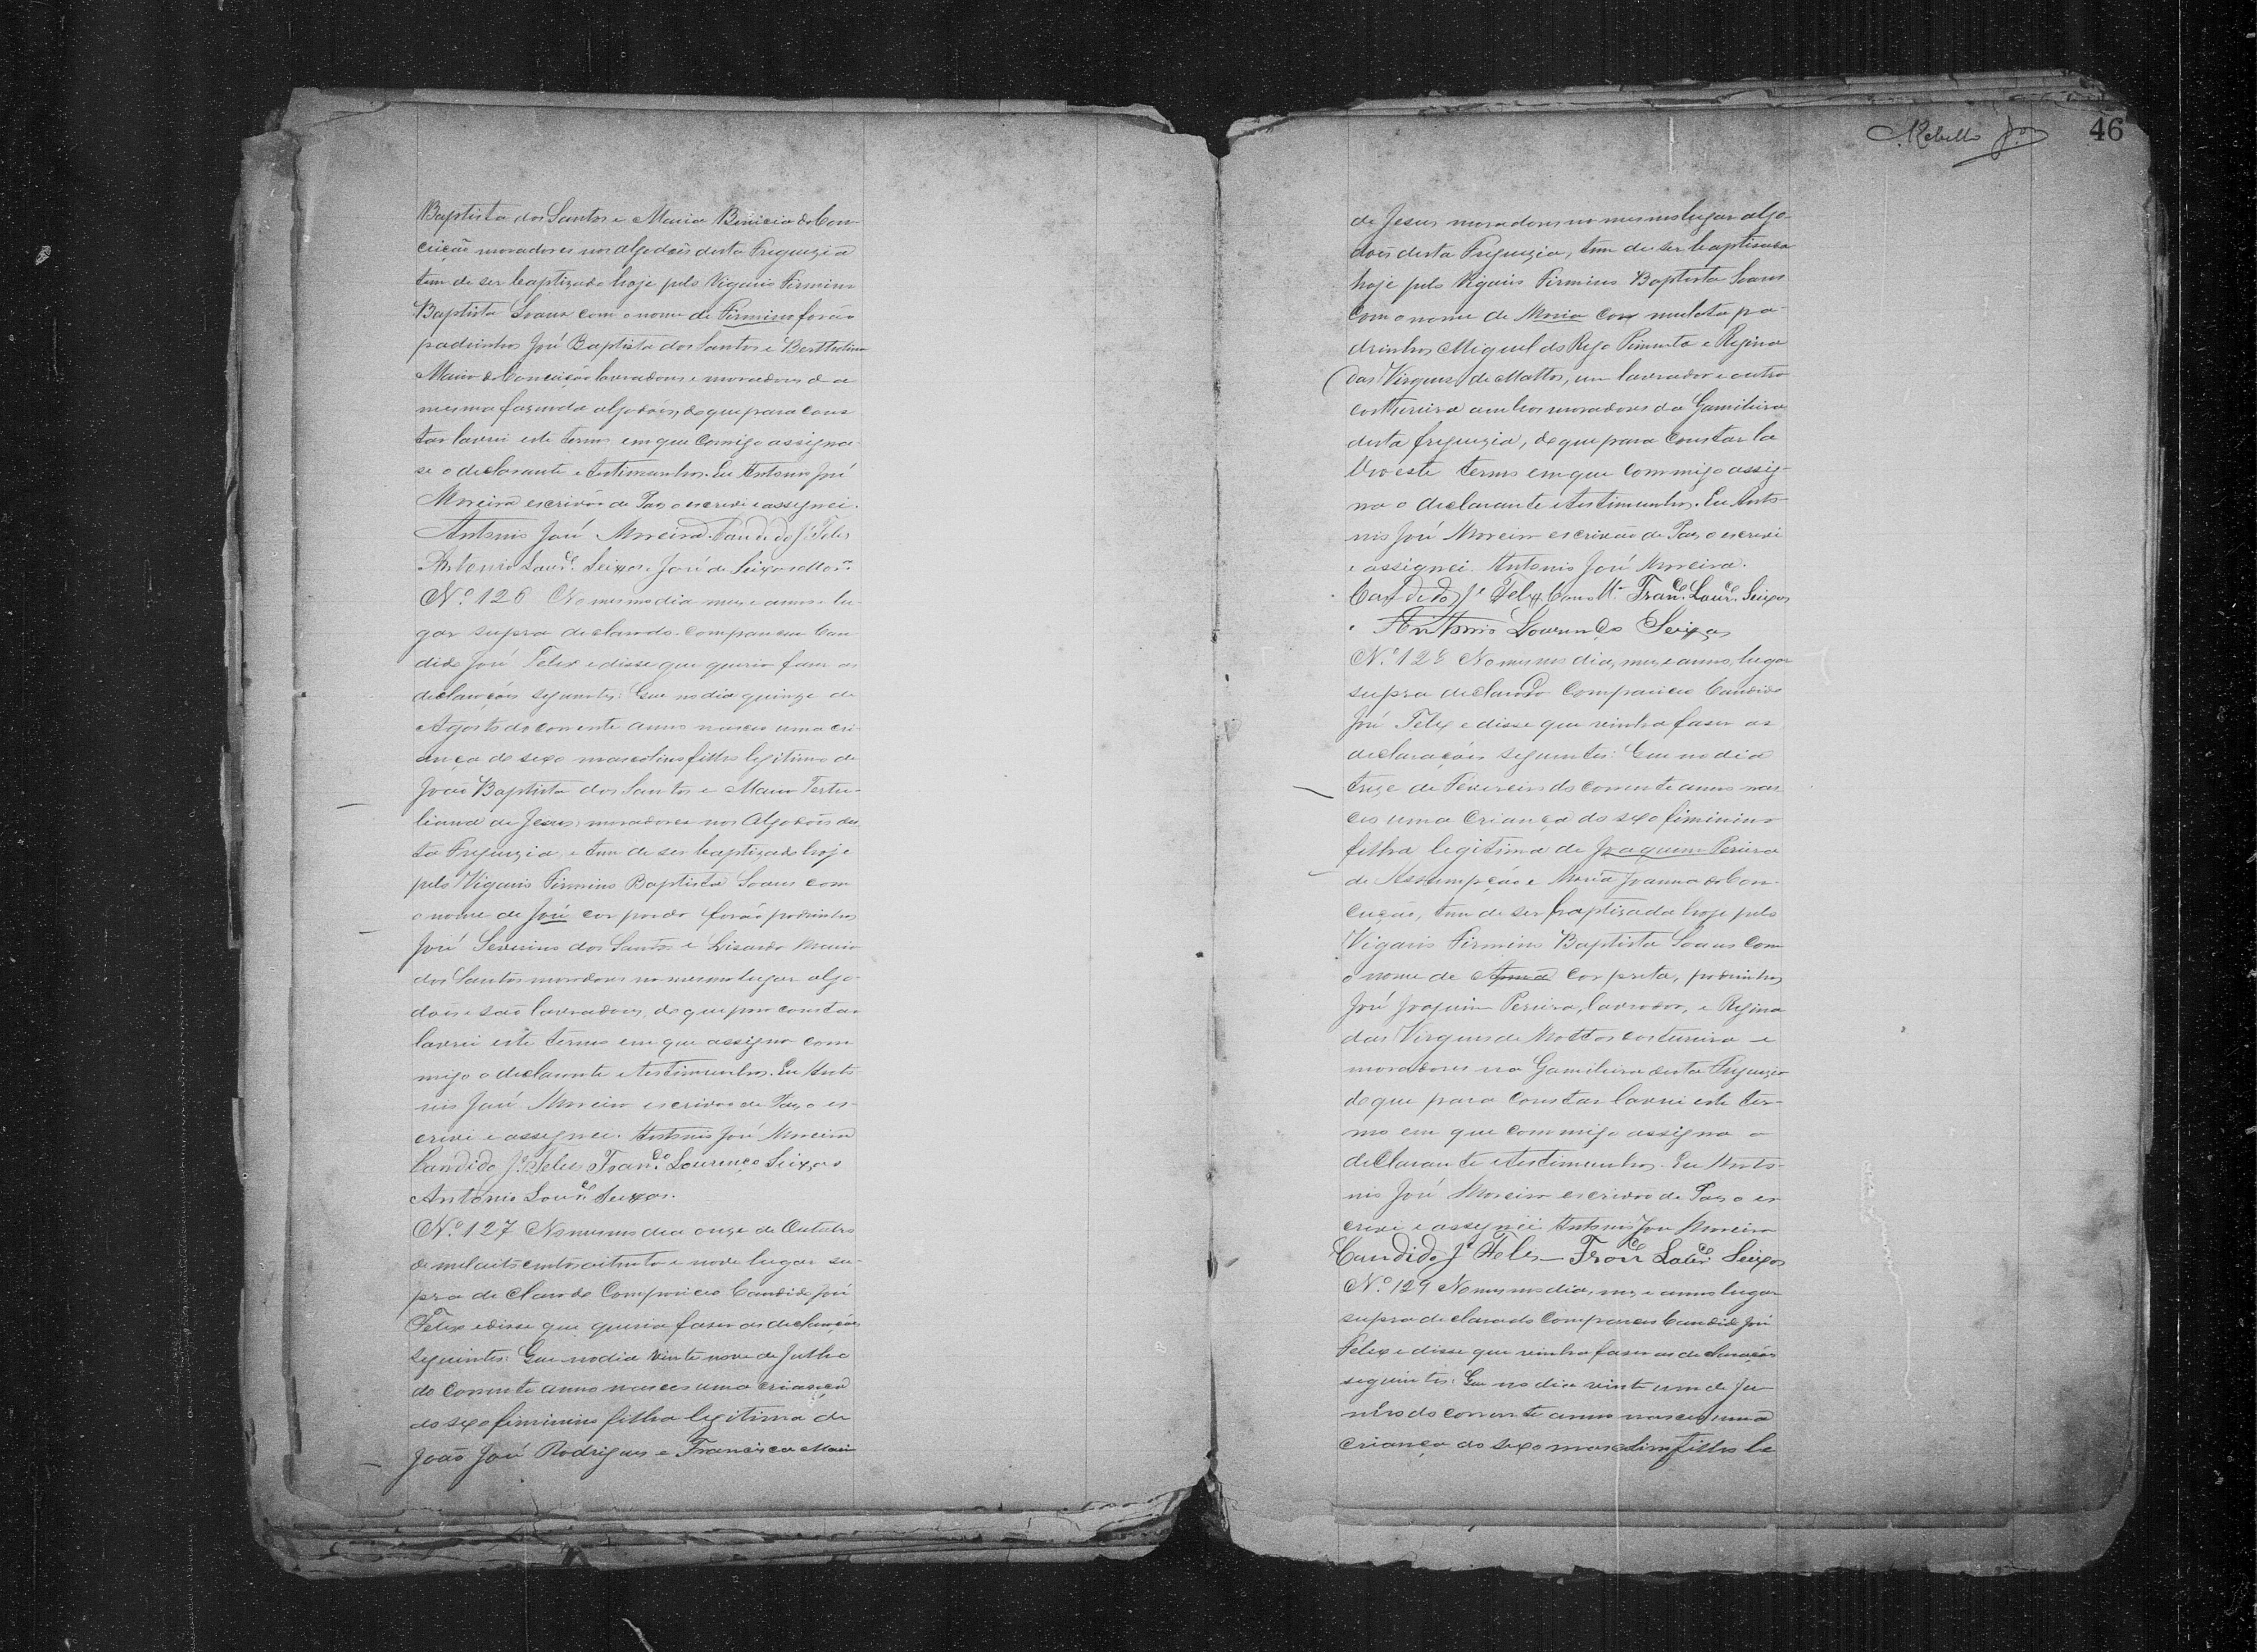 Baptista dos Santos e Maria Benicia da Con-
ceição moradores nos algodoēs desta Freguezia
tem de ser baptizado hoje pelo Vigario Firmino
Baptista Soares com o nome de Firmino forão
padrinhos José Baptista dos Santos e Berttolina
Maria da Conceição lavradores e moradores da
mesma fazenda algodoēs, do que para cons
tar lavrei este termo em que comigo assigna-
se o declarante e testimunhos. Eu Antonio José
Moreira escrivão de Paz o escrevi e assignei.
Antonio José Moreira. Candido Jé Felis
Antonio Lourço. Seixas. José de Seixas
Nº 126 No mesmo dia mez e anno e lu-
gar supra declarado. compareceu Can
dido José Felix e disse que queria faser as
declaraçoēs seguintes: Que no dia quinze de
Agosto do corrente anno nasceu uma cri
ança do sexo mascolino filho legitimo de
João Baptista dos Santos e Maria Tertu-
liana de Jesus, moradores nos Algodoēs des
ta Freguezia, e tem de ser baptizado hoje
pelo Vigario Firmino Baptista Soares com
o nome de José cor pardo forão padrinhos
José Severino dos Santos e Maria
dos Santos moradores no mesmo lugar algo-
doēs e são lavradores, do que para constar
lavrei este termo em que assigna com
migo o declarante e testimunhos. Eu Anto
nio José Moreira escrivão de Paz o es-
crevi e assignei. Antonio José Moreira
Candido Jé Felis Franco. Lourenço Seixas
Antonio Lourço. Seixas.
Nº 127 No mesmo dia onze de Outubro
de mil oito centos oitenta e nove lugar su-
pra declarado Compareceo Candido José
Felix e disse que queria faser as declaraçoēs
seguintes: Que no dia vinte nove de Julho
do corrente anno nasceo uma criança
do sexo feminino filha legitima de
João José Rodrigues e Francisca Maria
Rebello Jor 46
de Jesus moradores no mesmo lugar algo-
does desta Freguezia, tem de ser baptisada
hoje pelo Vigario Firmino Baptista Soares
com o nome de Maria cor mulata pa-
drinhos Miguel do Rego Pimenta e Regina
das Virgens de Mattos, um lavrador e outra
costureira ambos moradores da Gamileira
desta freguezia, do que para constar la
vro este termo em que commigo assig-
na o declarante e testimunhos. Eu Anto-
nio José Moreira escrivão de Paz o escrevi
e assignei. Antonio José Moreira.
Candido Jé Felix Franco Lourço. Seixas
Antonio Lourenço Seixas
Nº 128 No mesmo dia, mez e anno, lugar
supra declarado Compareceo Candido
José Felix e disse que vinha faser as
declaraçoēs seguintes: Que no dia
treze de Fevereiro do corrente anno nas
ceo uma criança do sexo feminino
filha legitima de Joaquim Pereira
de Assumpção e Maria Joanna da Con-
ceição, tem de ser baptizada hoje pelo
Vigario Firmino Baptista Soares com
o nome de Anna cor preta, padrinhos
José Joaquim Pereira, lavrador, e Regina
das Virgens de Mattos costureira e
moradores na Gamileira desta Freguezia
do que para constar lavrei este ter-
mo em que commigo assigna o
declarante e testimunhos. Eu Anto-
nio José Moreira escrivão de Paz o es
crevi e assignei Antonio José Moreira
Candido Jé Felis — Franco Lourço. Seixas
Nº 129 No mesmo dia, mez e anno lugar
supra declarado compareceu Candido José
Felix e disse que vinha faser as declaraçoēs
seguintes: Que no dia vinte um de Ja
neiro do corrente anno nasceu uma
criança do sexo mascolino filho le